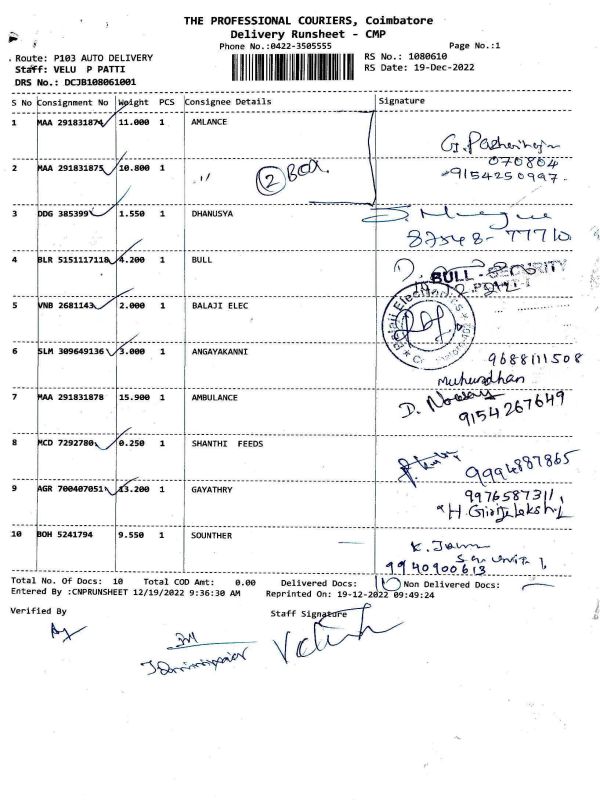 THE PROFESSIONAL COURIERS, Coimbatore
Delivery Runsheet - CMP
Phone No.:0422-3505555 Page No.:1
Route: P103 AUTO DELIVERY RS No.: 1080610
Staff: VELU P PATTI RS Date: 19-Dec-2022
DRS No.: DCJB108061001
S No Consignment No Weight PCS Consignee Details Signature
1 MAA 291831874 11.000 1 AMLANCE
070804
2 MAA 291831875 10.800 1 ,, 2 Box
9154250997
3 DDG 385399 1.550 1 DHANUSYA
82548-77710
4 BLR 5151117118 4.200 1 BULL
BULL - SECURITY
5 VNB 2681143 2.000 1 BALAJI ELEC
Balaji Electronics
6 SLM 309649136 3.000 1 ANGAYAKANNI 9688111508
7 MAA 291831878 15.900 1 AMBULANCE
9154267649
8 MCD 7292780 0.250 1 SHANTHI FEEDS
9994887865
9 AGR 700407051 13.200 1 GAYATHRY 9976587311
10 BOH 5241794 9.550 1 SOUNTHER
9940900613
Total No. Of Docs: 10 Total COD Amt: 0.00 Delivered Docs: 10 Non Delivered Docs:
Entered By :CNPRUNSHEET 12/19/2022 9:36:30 AM Reprinted On: 19-12-2022 09:49:24
Verified By Staff Signature